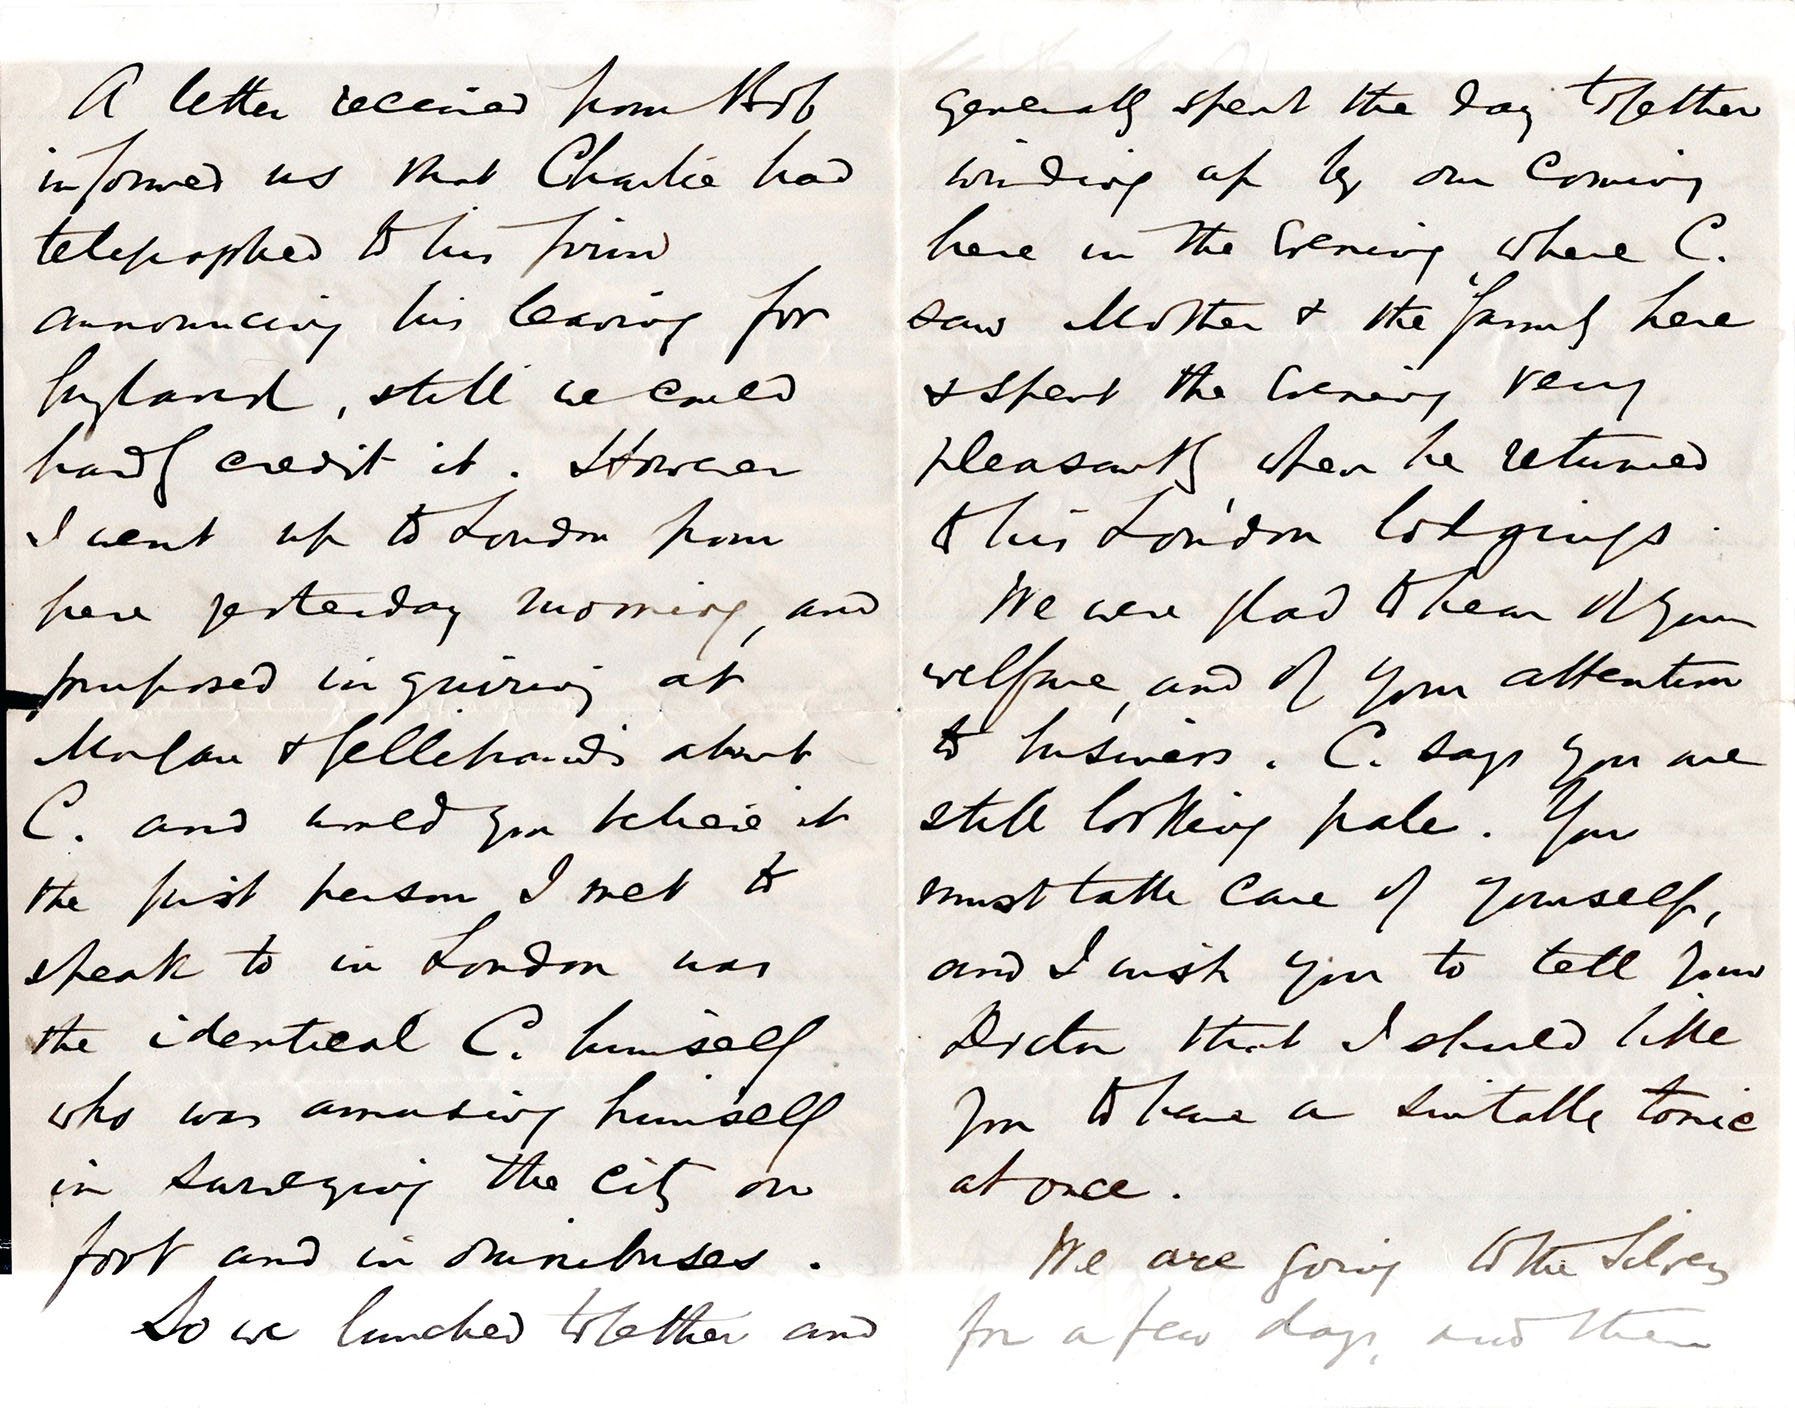 A letter received from Bob
informed us that Charlie had
telegraphed to his firm
announcing his leaving for
England, still we could
hardly credit it. However
I went up to London from
here yesterday morning, and
proposed inquiring at
Morgan & Gellibrand's about
C. and would you believe it
the first person I met to
speak to in London was
the identical C. himself
who was amusing himself
in surveying the city on
foot and in omnibuses.
So we lunched together and
generally spent the day together
winding up by our coming
here in the evening where C.
saw Mother & the family here
& spent the evening very
pleasantly when he returned
to his London lodgings.
We were glad to hear of your
welfare, and of your attention
to business. C. says you are
still looking pale. You
must take care of yourself,
and I wish you to tell your
Doctor that I should like
you to have a suitable tonic
at once.
We are going to the
for a few days, and then